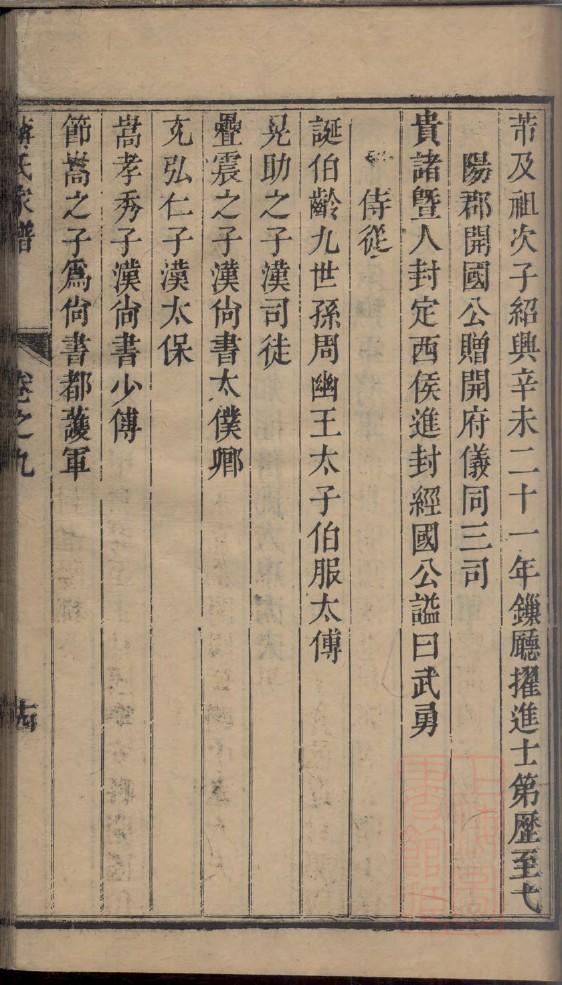 芾及祖次子紹興辛未二十一年鏁廳擢進士第歷至弋
陽郡開國公贈開府儀同三司
貴諸曁人封定西侯進封經國公謚曰武勇
侍從
誕伯齡九世孫周幽王太子伯服太傅
晃助之子漢司徒
疊震之子漢尙書太僕卿
充弘仁子漢太保
嵩孝秀子漢尙書少傅
節嵩之子爲尙書都護軍
氏家譜 卷之九